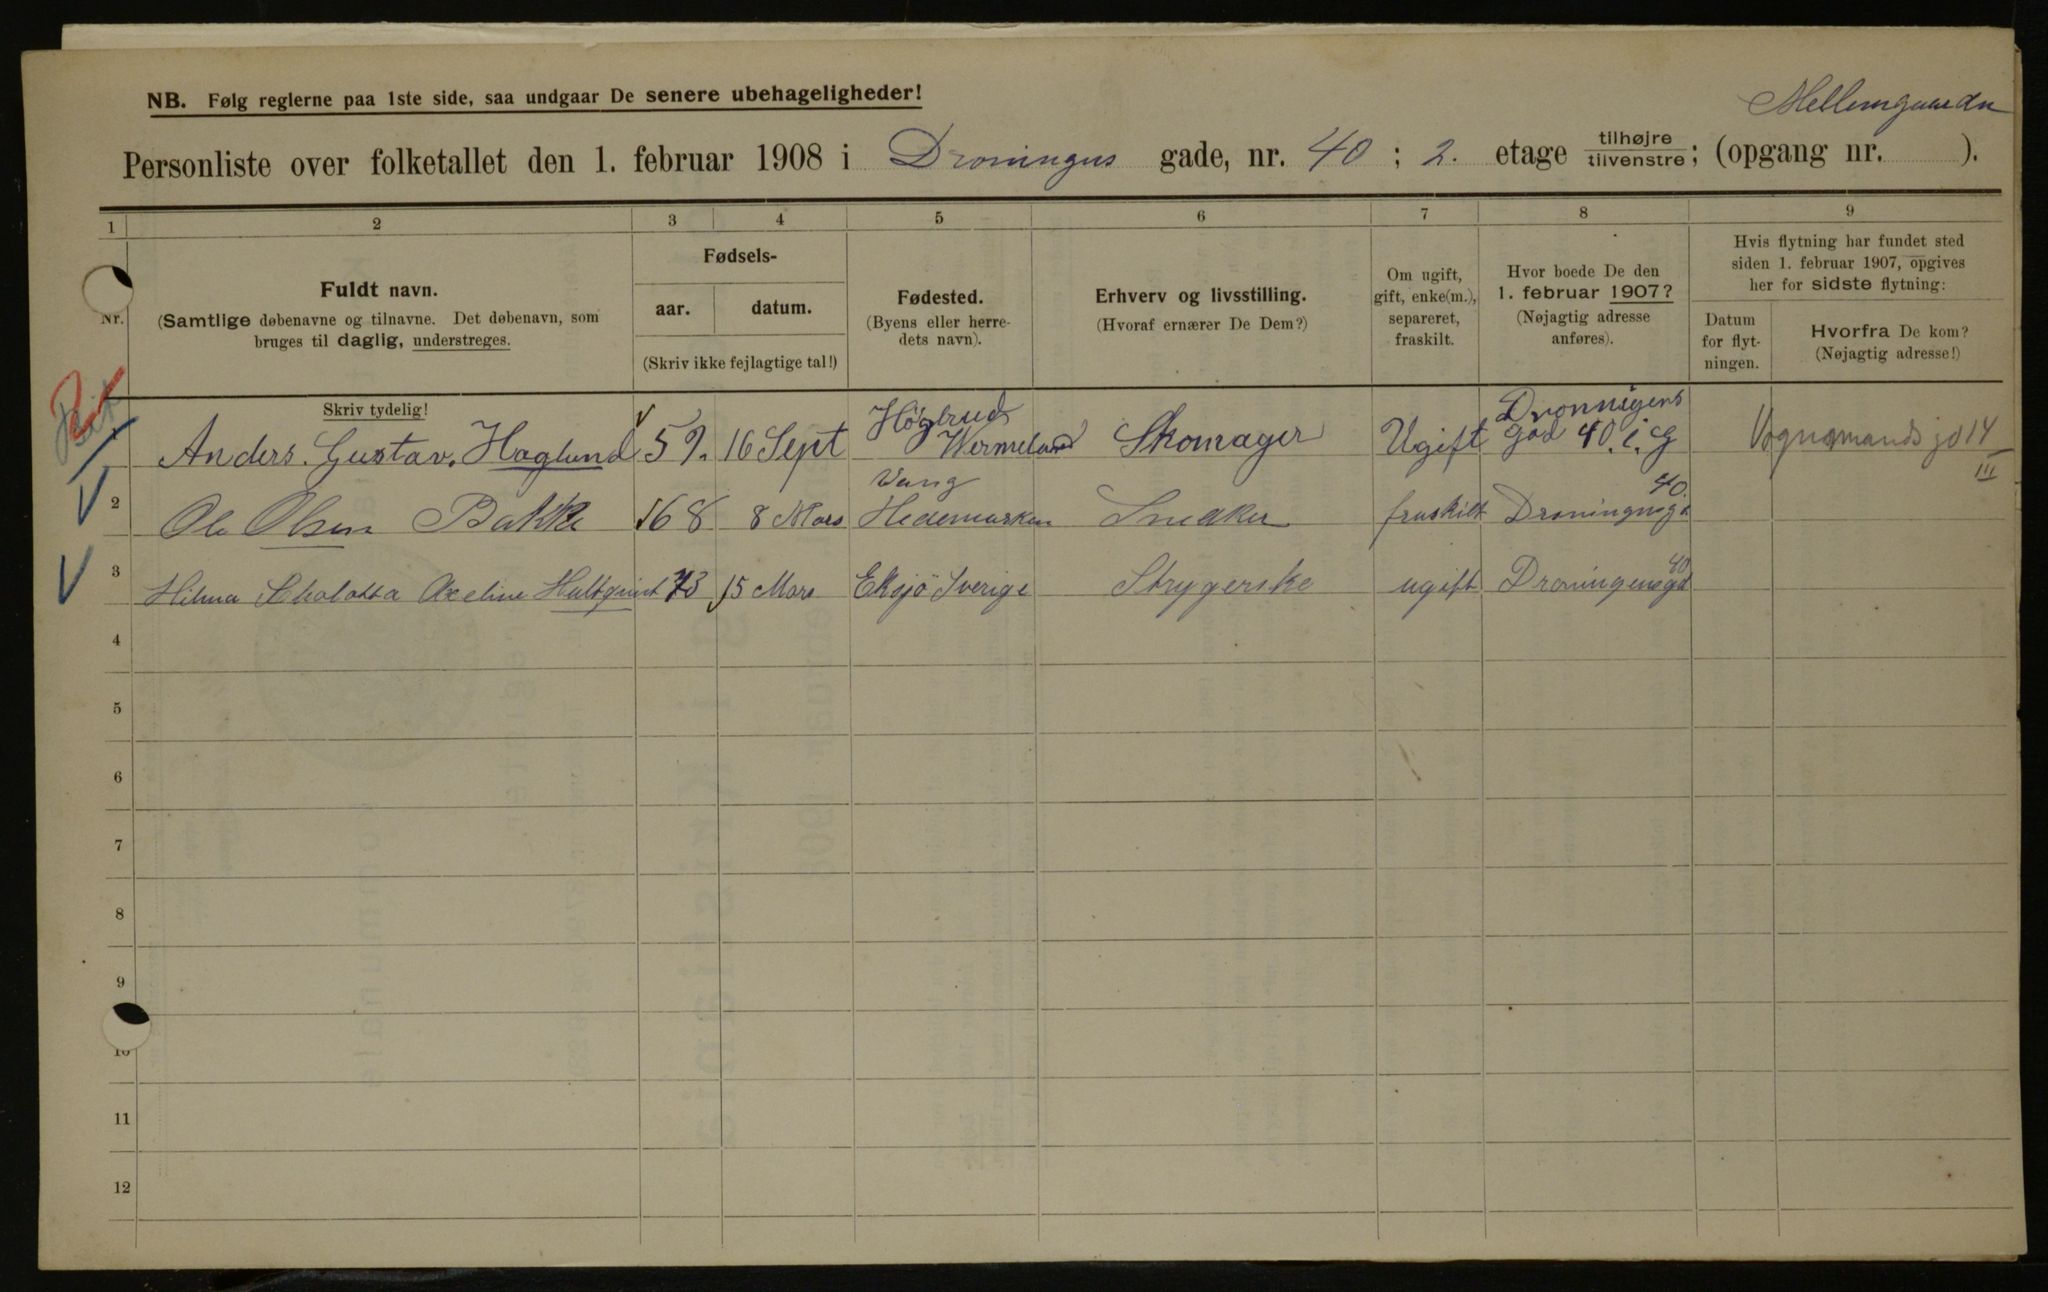 Mellemgaarden
NB. Følg reglerne paa 1ste side, saa undgaar De senere ubehageligheder!
Personliste over folketallet den 1. februar 1908 i Droningens gade, nr. 40 ; 2. etage tilhøjre/tilvenstre; (opgang nr. ).
1 2 3 4 5 6 7 8 9
Nr.
Fuldt navn.
(Samtlige døbenavne og tilnavne. Det døbenavn, som
bruges til daglig, understreges.
Skriv tydelig!
Fødsels-
aar. datum.
(Skriv ikke fejlagtige tal!)
Fødested.
(Byens eller herre-
dets navn).
Erhverv og livsstilling.
(Hvoraf ernærer De Dem?)
Om ugift,
gift, enke(m.),
separeret,
fraskilt.
Hvor boede De den
1. februar 1907?
(Nøjagtig adresse
anføres).
Hvis flytning har fundet sted
siden 1. februar 1907, opgives
her for sidste flytning:
Datum
for flyt-
ningen.
Hvorfra De kom?
(Nøjagtig adresse!)
Anders. Gustav. Haglund 59. 16 Sept Högbrud Wermeland Skomager Ugift Dronnigens Gad 40. i. G Vognmandsgd 14 III
2 Ole Olsen Bakke 68 8 Mars Vang Hedemarken Snedker fraskilt Droningensgd 40.
3 Hilma Scholotta Axeline Hultquist 73 15 Mars Eksjö Sverige Strygerske ugift Droningensgd 40
4
5
6
7
8
9
10
11
12